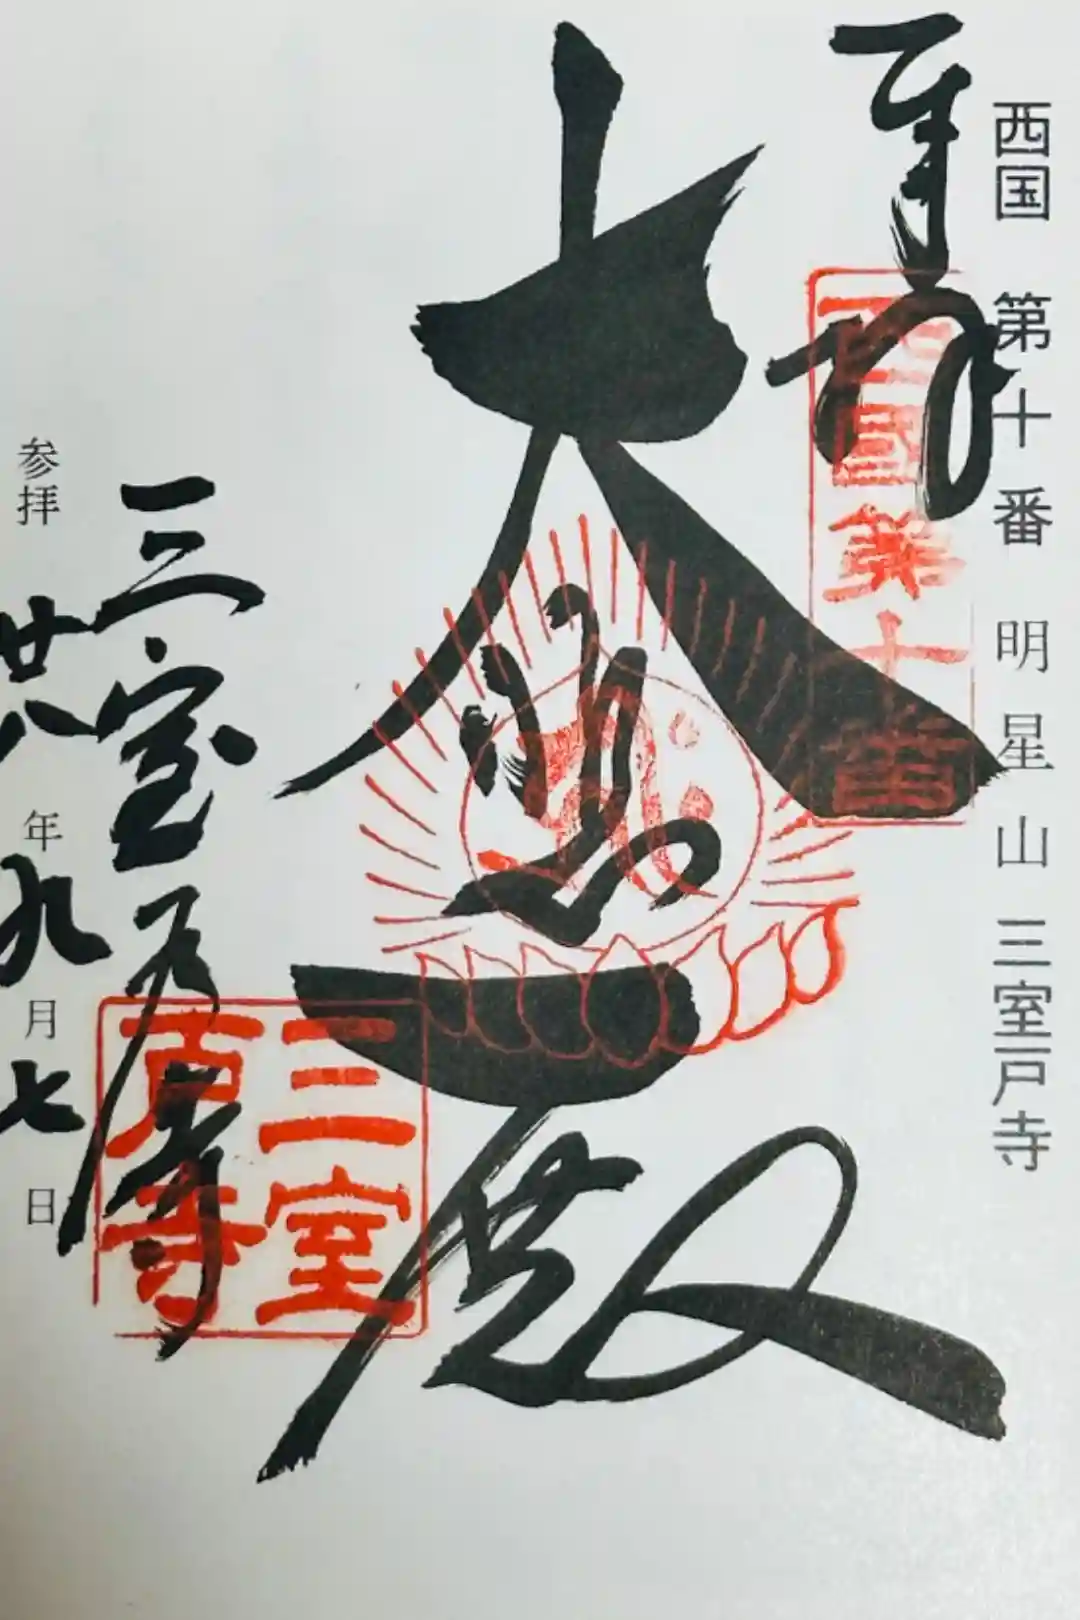 西国 第十番 明星山 三室戸寺
奉拝
西國第十番
大悲殿
三室戸寺
三室戸寺
参拝 廿八年九月七日